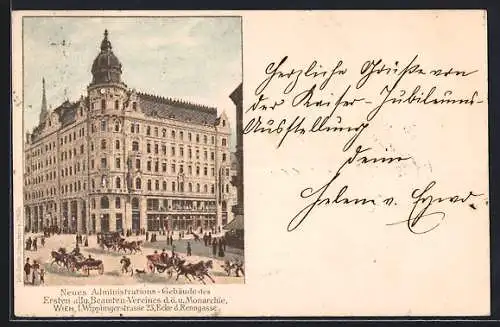 Neues Administrations-Gebäude des
Ersten allg. Beamten-Vereines d.ö.u. Monarchie,
WIEN, I. Wipplingerstrasse 25, Ecke d. Renngasse.
Herzliche Grüße von
der Kaiser-Jubileums-
Ausstellung
Deine
Helene v.